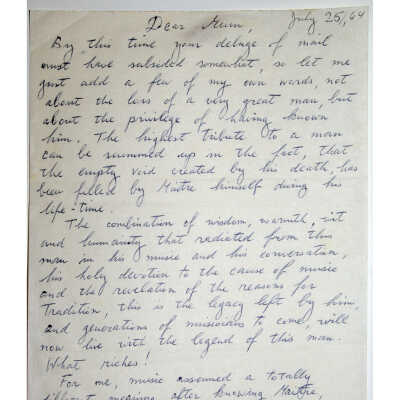 July 25, 64
Dear Mum,
By this time your deluge of mail
must have subsided somewhat, so let me
just add a few of my own words, not
about the loss of a very great man, but
about the privilege of having known
him. The highest tribute to a man
can be summed up in the fact, that
the empty void created by his death, has
been filled by Maître himself during his
life-time.
The combination of wisdom, warmth, wit
and humanity that radiated from this
man in his music and his conversation,
his holy devotion to the cause of music
and the revelation of the reasons for
Tradition, this is the legacy left by him,
and generations of musicians to come, will
now live with the legend of this man.
What riches!
For me, music assumed a totally
different meaning after knowing Maître,